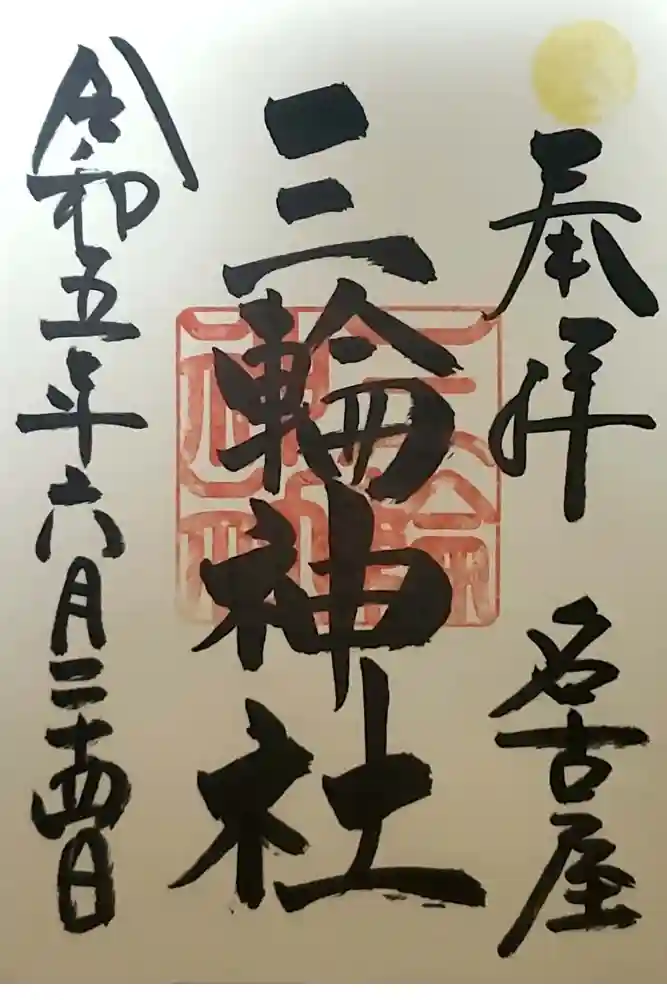 奉拝
名古屋
三輪神社
令和五年六月二十四日